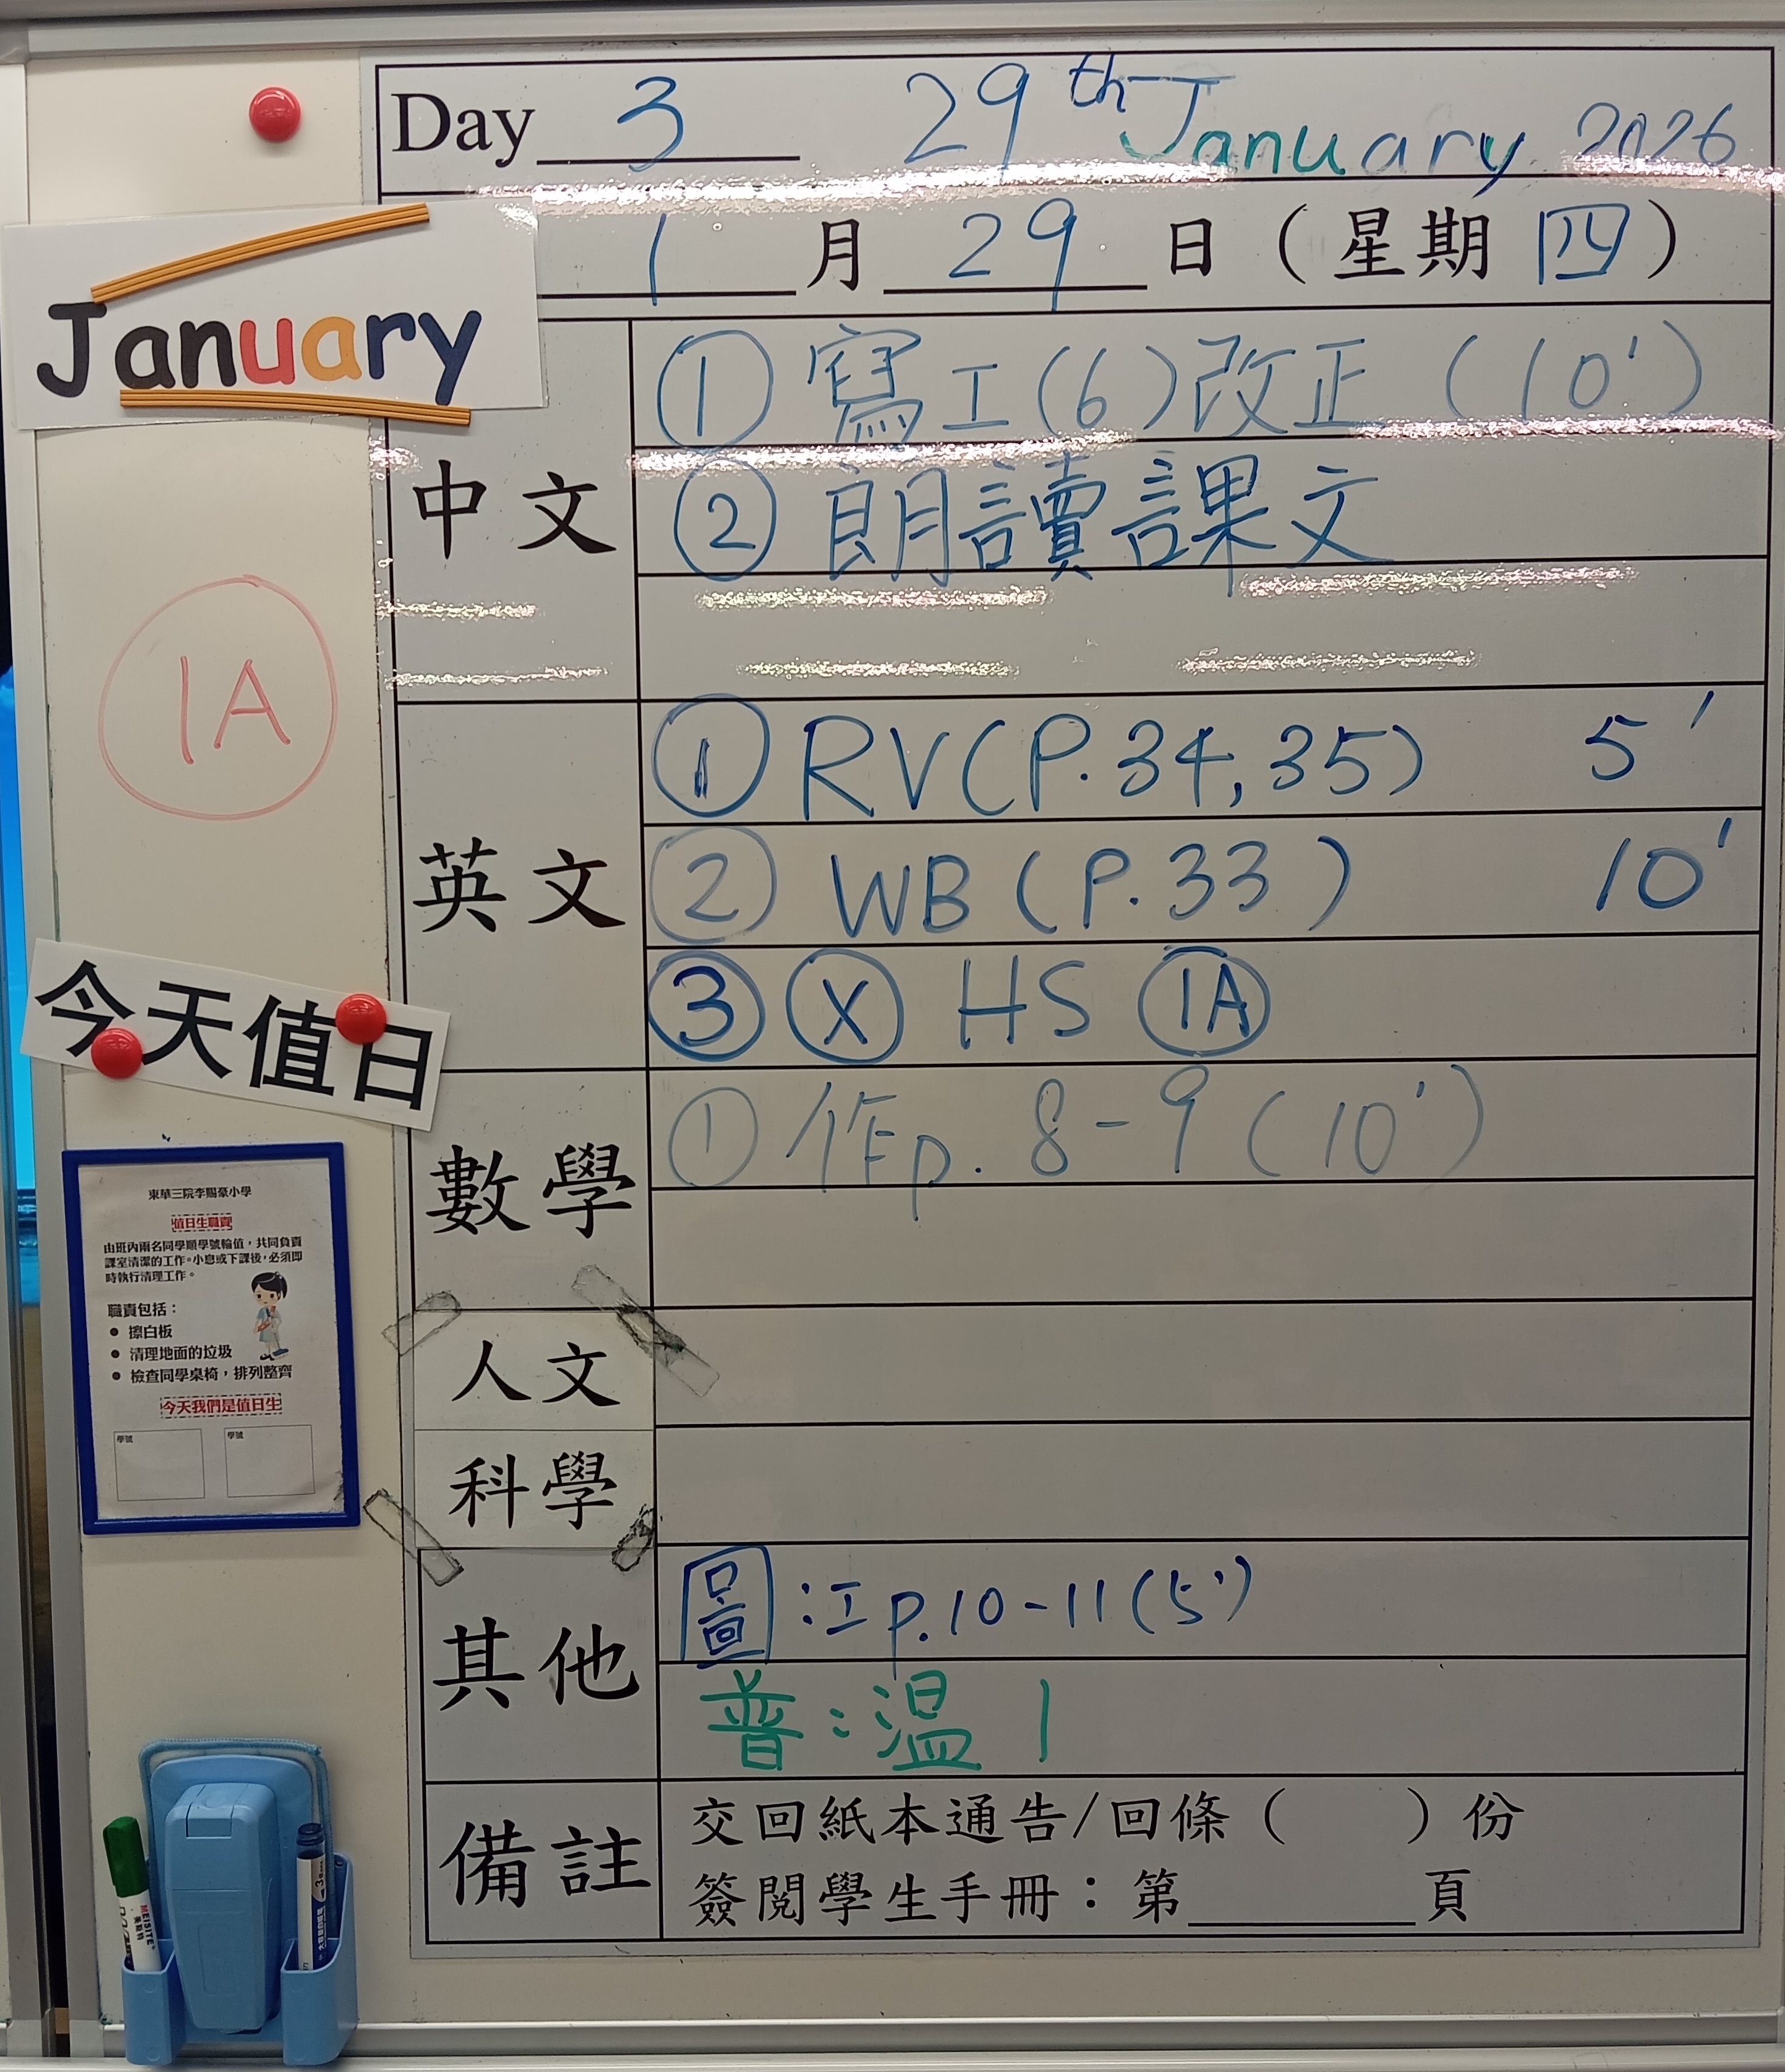 Day 3 29th January 2026
1 月 29 日 ( 星期 四 )
January
中文
① 寫工(6)改正 (10')
② 朗讀課文
1A
英文
① RV(P.34,35) 5'
② WB (P.33) 10'
③ Ⓧ HS 1A
今天值日
數學
① 作p. 8-9 (10')
人文
科學
其他
圖:工p.10-11(5')
普:温 1
備註
交回紙本通告/回條 ( ) 份
簽閱學生手冊:第______頁
東華三院李賜豪小學
值日生職責
由班內兩名同學順學號輪值,共同負責
課室清潔的工作。小息或下課後,必須即
時執行清理工作。
職責包括:
• 擦白板
• 清理地面的垃圾
• 檢查同學桌椅,排列整齊
今天我們是值日生
學號 學號
MEISITE